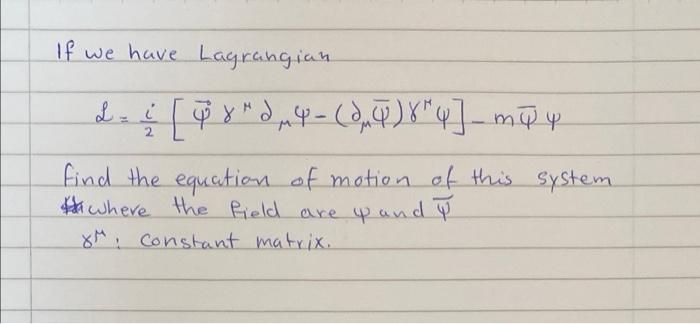 If we have Lagrangian
ℒ = i/2 [ ψ̄ γ^μ ∂_μ ψ - (∂_μ ψ̄) γ^μ ψ ] - m ψ̄ ψ
find the equation of motion of this system
where the field are ψ and ψ̄
γ^μ : constant matrix.